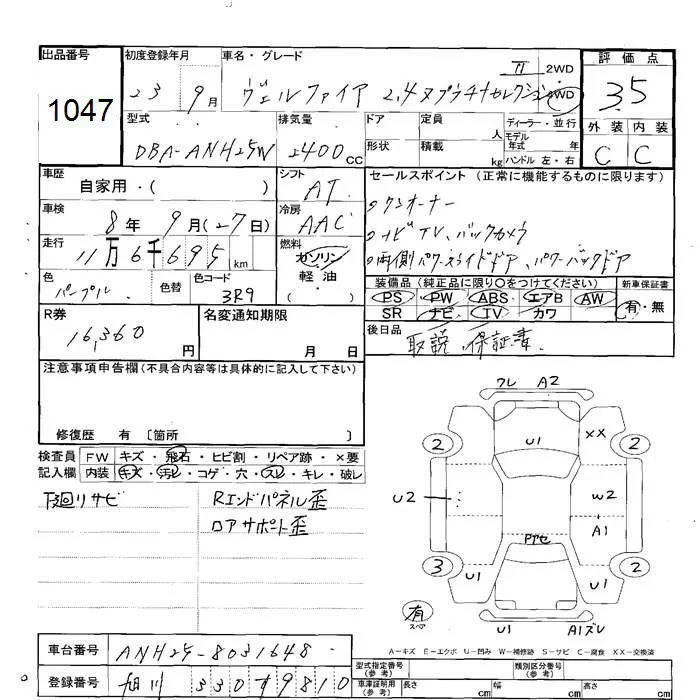 出品番号 1047
初度登録年月 23 9月
車名・グレード ヴェルファイア 2.4 Z プラチナセレクションII
2WD 4WD
評価点 3.5
外装 内装
C C
型式 DBA-ANH25W
排気量 2400cc
ドア 定員 人
形状 積載 kg
ディーラー・並行
モデル年式 年式
ハンドル 左・右
車歴 自家用・( )
シフト AT
セールスポイント(正常に機能するものに限ります)
・ワンオーナー
・ナビTV、バックカメラ
・両側パワースライドドア、パワーバックドア
車検 8年 9月(27日)
冷房 AAC
走行 11万6千695km
燃料 ガソリン・軽油 ( )
色 パープル
色替
色コード 3R9
装備品(純正品に限り○をつけてください)
PS PW ABS エアB AW
SR ナビ TV カワ
新車保証書 有・無
R券 16,360円
名変通知期限 月 日
後日品 取説、保証書
注意事項申告欄(不具合内容等は具体的に記入して下さい)
修復歴 有 〔箇所 〕
検査員記入欄
FW キズ・飛石・ヒビ割・リペア跡・×要
内装 キズ・汚レ・コゲ・穴・スレ・キレ・破レ
下廻リサビ
Rエンドパネル歪
ロアサポート歪
ワレ A2
XX
2 U1 2
U2 W2
A1
3 U1 U1 2
有 スペア
U1 A1ズレ
A-キズ E-エクボ U-凹み W-補修跡 S-サビ C-腐食 XX-交換済
車台番号 ANH25-8031648
登録番号 旭川 330 す 9810
型式指定番号(参考)
類別区分番号(参考)
車庫証明用(参考) 長さ cm 幅 cm 高さ cm